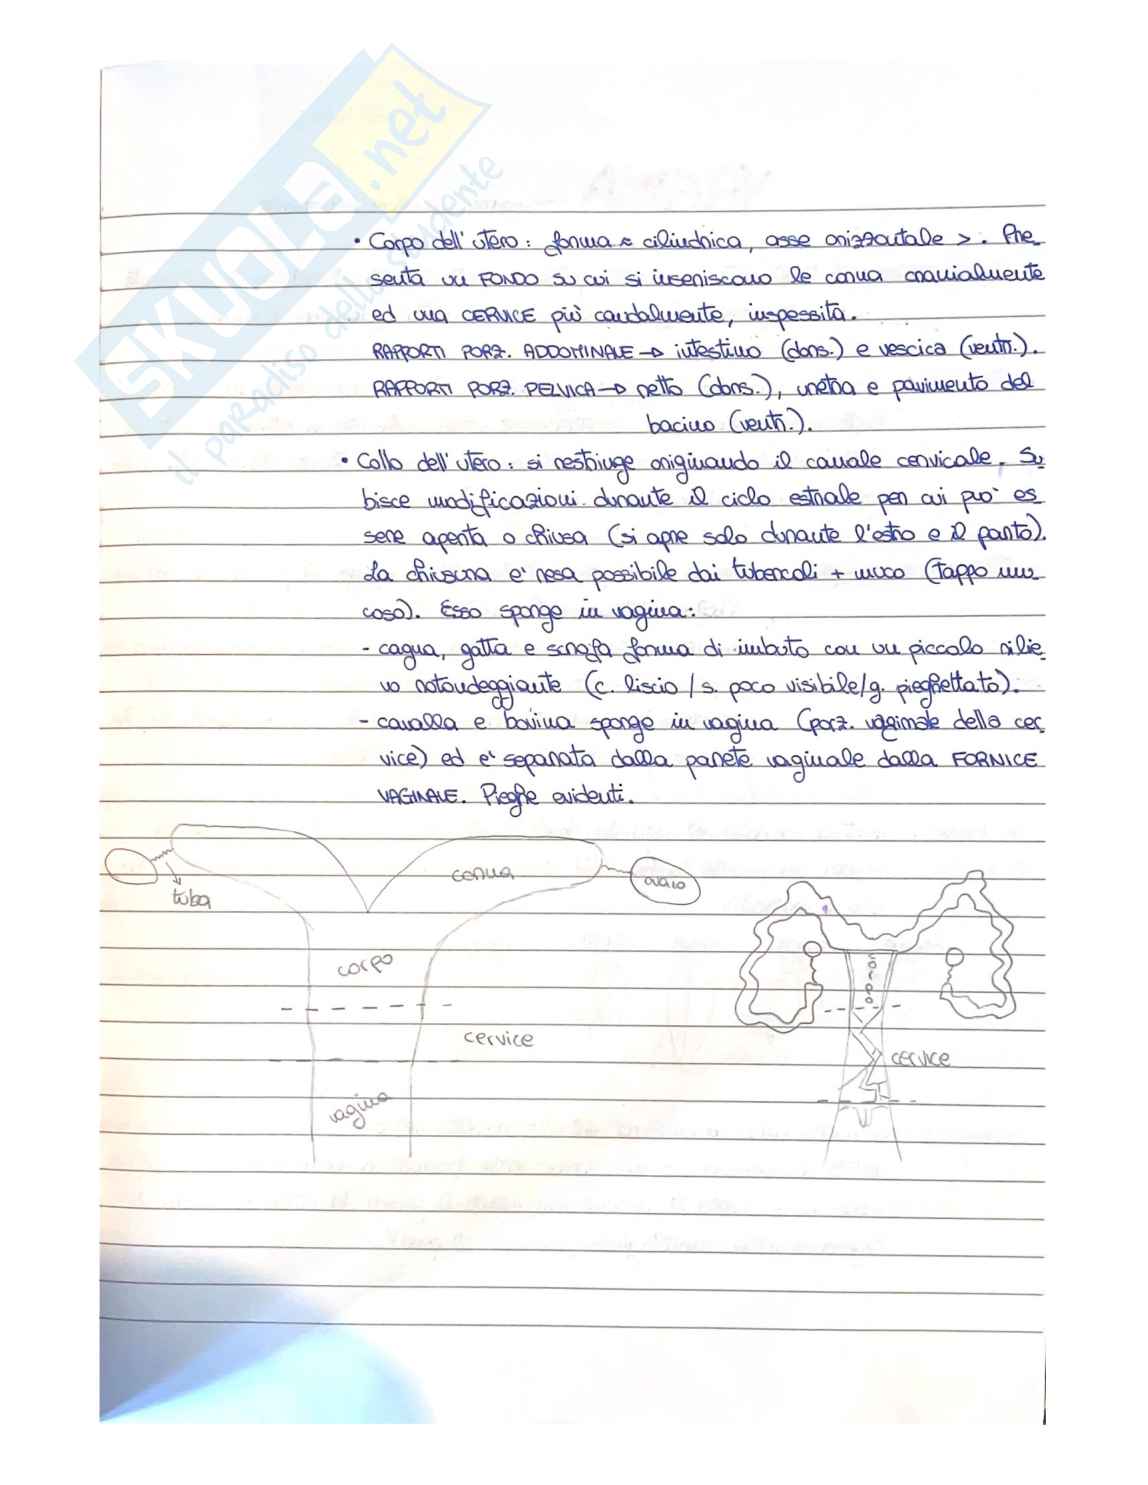 SKUOLA.net
il paradiso dello studente
• Corpo dell'utero: forma ≈ cilindrica, asse orizzontale >. Pre_
senta un FONDO su cui si inseriscono le corna cranialmente
ed una CERVICE più caudalmente, inspessita.
RAPPORTI PORZ. ADDOMINALE → intestino (dors.) e vescica (ventr.).
RAPPORTI PORZ. PELVICA → retto (dors.), uretra e pavimento del
bacino (ventr.).
• Collo dell'utero: si restringe originando il canale cervicale. Su
bisce modificazioni durante il ciclo estrale per cui può es
sere aperta o chiusa (si apre solo durante l'estro e il parto).
La chiusura e' resa possibile dai tubercoli + muco (Tappo mu_
coso). Esso sporge in vagina:
- cagna, gatta e scrofa forma di imbuto con un piccolo rilie_
vo rotondeggiante (c. liscio / s. poco visibile/g. pieghettato).
- cavalla e bovina sporge in vagina (porz. vaginale della cer_
vice) ed e' separata dalla parete vaginale dalla FORNICE
VAGINALE. Pieghe evidenti.
tuba
corna
ovaio
corpo
cervice
vagina
corpo
cervice